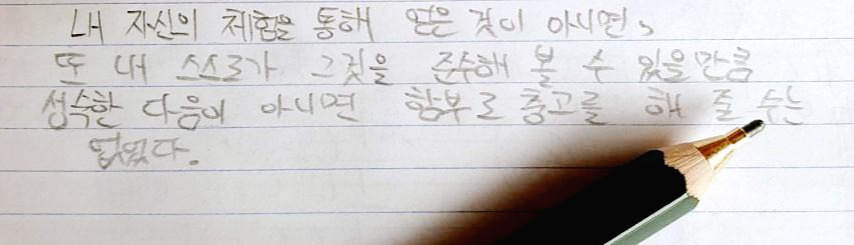 내 자신의 체험을 통해 얻은 것이 아니면,
또 내 스스로가 그것을 준수해 볼 수 있을만큼
성숙한 다음이 아니면 함부로 충고를 해 줄 수는
없었다.